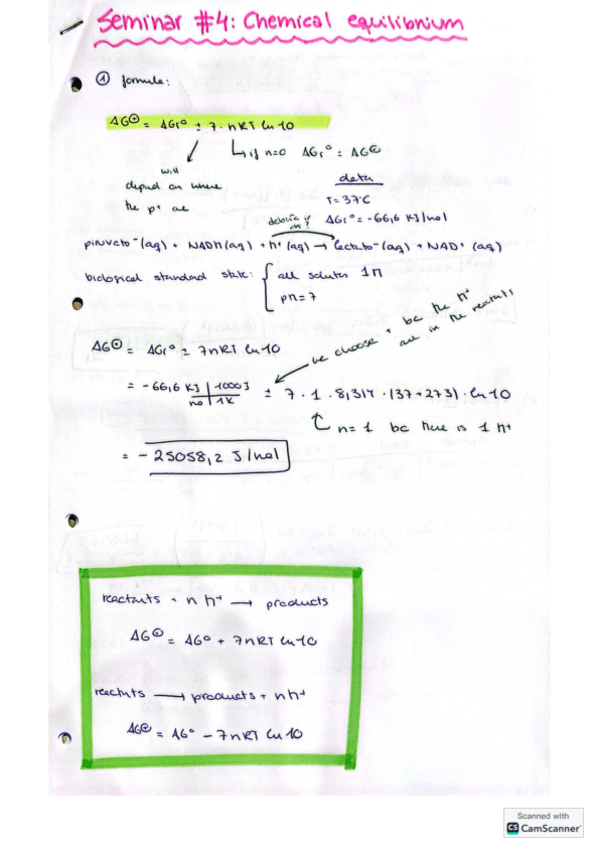 Seminar #4: Chemical equilibrium
① formula:
ΔG⊕ = ΔGr° ± 7·nRT ln10
if n=0 ΔGr° = ΔG⊕
will
depend on where
the p+ are
data
T = 37°C
ΔGr° = -66,6 KJ/mol
piruvato⁻(aq) + NADH(aq) + H⁺(aq) → lactato⁻(aq) + NAD⁺(aq)
biological standard state: { all solutes 1M
pH = 7
we choose + bc the H⁺
are in the reactants
ΔG⊕ = ΔGr° ± 7nRT ln10
= -66,6 KJ/mol | 1000J/1K ± 7·1·8,314·(37+273)·ln10
n=1 bc there is 1 H⁺
= -25058,2 J/mol
reactants + n H⁺ → products
ΔG⊕ = ΔG° + 7nRT ln10
reactants → products + nH⁺
ΔG⊕ = ΔG° - 7nRT ln10
Scanned with
CS CamScanner